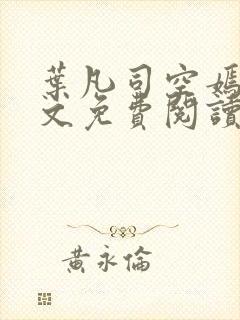 葉凡司空嫣
文免費閱讀
黃永倫